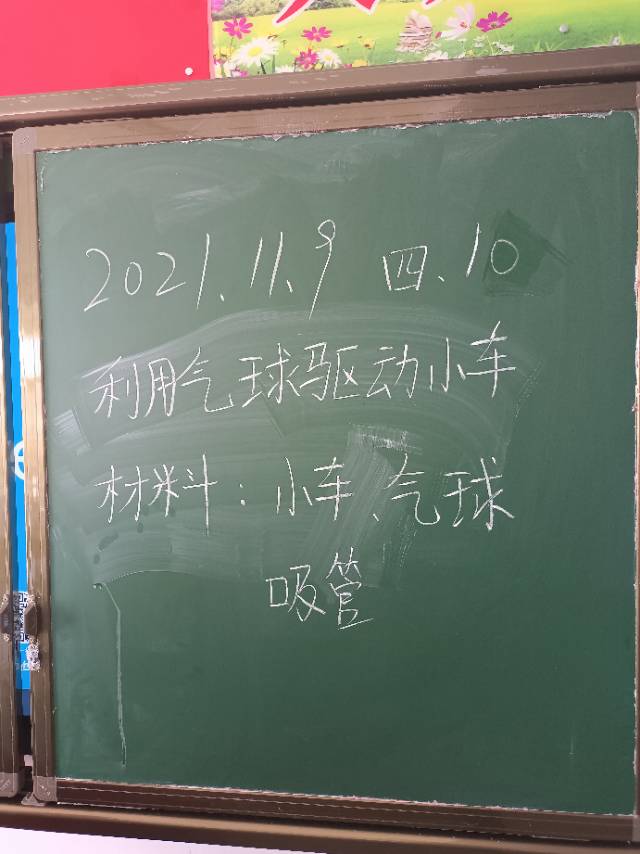 2021.11.9 四、10
利用气球驱动小车
材料：小车、气球
吸管